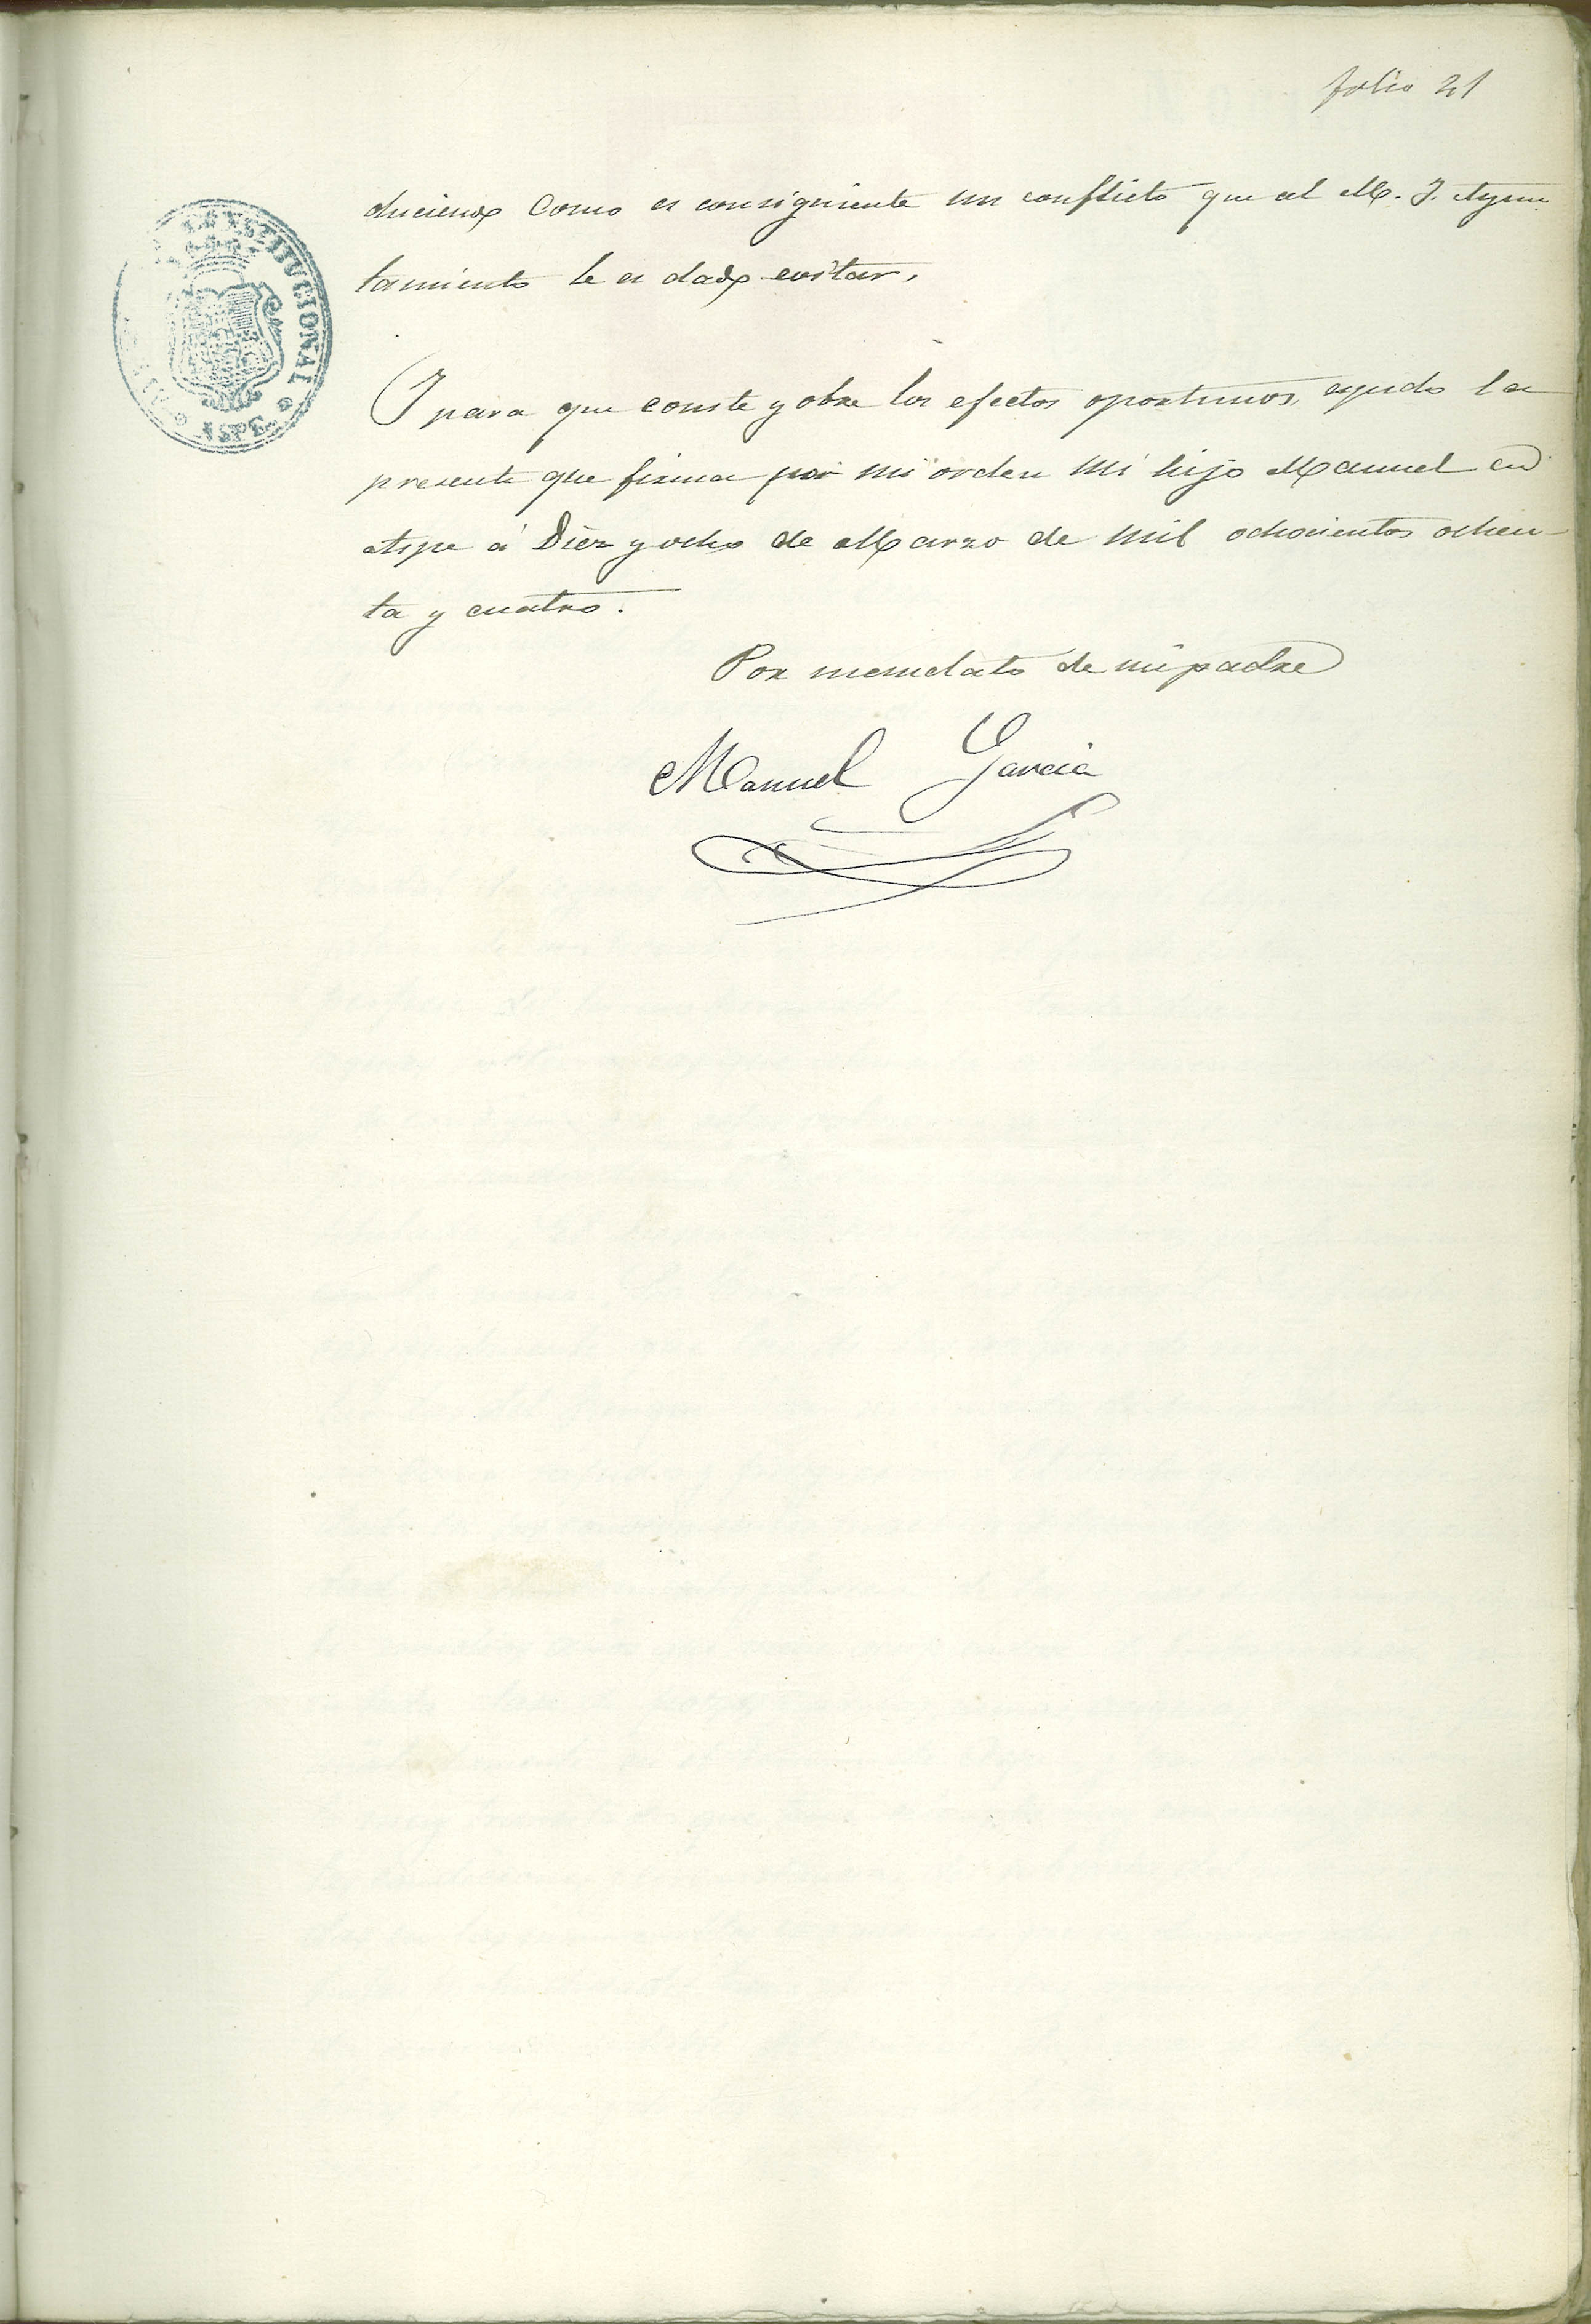 folio 21
duciendo Como es consiguiente un conflicto que al M. I. Ayun
tamiento le es dado evitar.
Y para que conste y obre los efectos oportunos, espido la
presente que firma por mi orden mi hijo Manuel en
Aspe á Diez y ocho de Marzo de mil ochocientos ochen-
ta y cuatro.
Por mandato de mi padre
Manuel Garcia